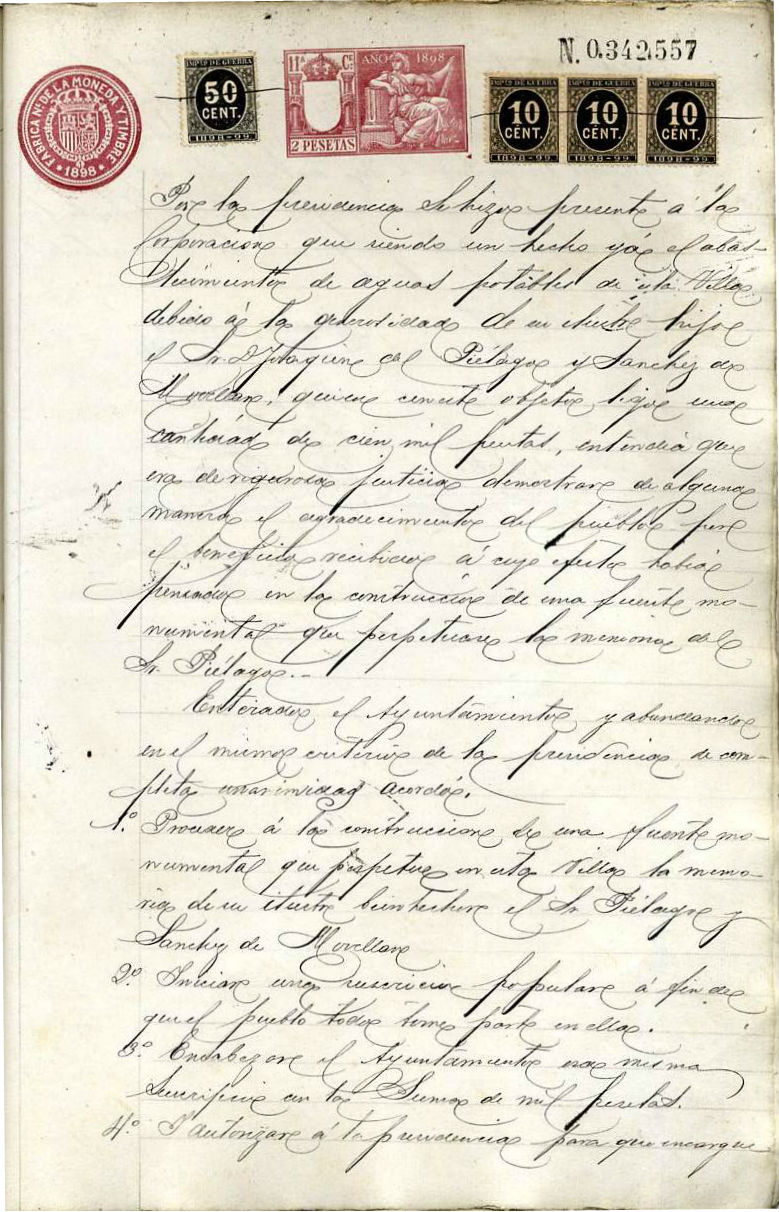 N. 0.342,557
FABRICA NL. DE LA MONEDA Y TIMBRE
* 1898 *
IMPTO DE GUERRA
50
CENT.
1898-99
11ª Cª
2 PESETAS
AÑO 1898
IMPTO DE GUERRA
10
CÉNT.
1898-99
IMPTO DE GUERRA
10
CÉNT.
1898-99
IMPTO DE GUERRA
10
CÉNT.
1898-99
Por la presidencia se hizo presente á la
Corporacion que siendo un hecho ya el abas-
tecimiento de aguas potables de esta Villa
debido á la generosidad de su ilustre hijo
el Sr. D. Joaquin del Piélago y Sanchez de
Movellan, quien con este objeto legó una
cantidad de cien mil pesetas, entendia que
era de rigurosa justicia demostrar de alguna
manera el agradecimiento del pueblo por
el beneficio recibido á cuyo efecto habia
pensado en la construccion de una fuente mo-
numental que perpetuare la memoria del
Sr. Piélago.
Enterado el Ayuntamiento y abundando
en el mismo criterio de la presidencia, de com-
pleta unanimidad acordó.
1.º Proceder á la construccion de una fuente mo-
numental que perpetue en esta Villa la memo-
ria de su ilustre bienhechor el Sr. Piélago y
Sanchez de Movellan
2.º Iniciar una suscricion popular á fin de
que el pueblo todo tome parte en ella.
3.º Encabezar el Ayuntamiento esa misma
suscricion con la suma de mil pesetas.
4.º Y autorizar á la presidencia para que encargue